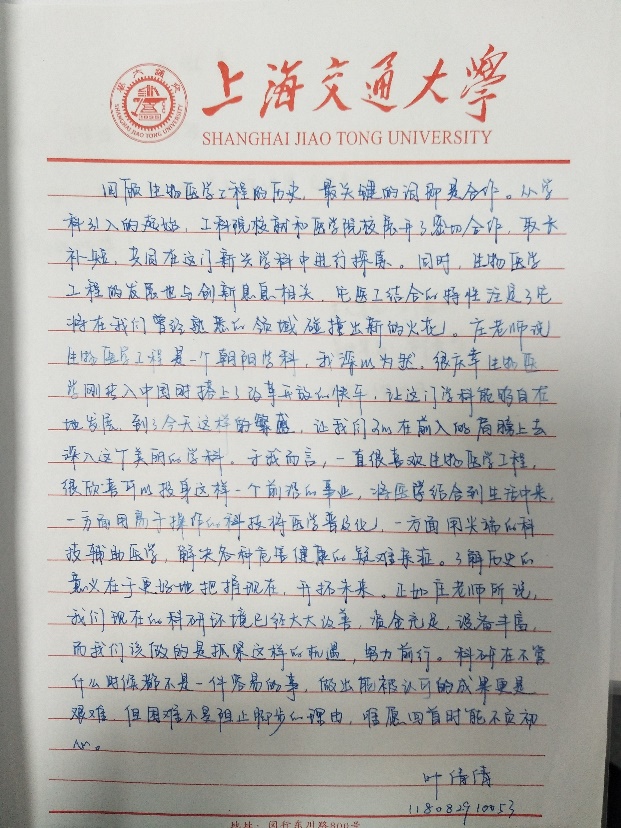 上海交通大學
SHANGHAI JIAO TONG UNIVERSITY
回顾生物医学工程的历史，最关键的词即是合作。从学
科引入的起始，工科院校就和医学院校展开了密切合作，取长
补短，共同在这门新兴学科中进行探索。同时，生物医学
工程的发展也与创新息息相关，它医工结合的特性注定了它
将在我们曾经熟悉的领域碰撞出新的火花。庄老师说
生物医学工程是一个朝阳学科，我深以为然，很庆幸生物医
学刚传入中国时搭上了改革开放的快车，让这门学科能够自在
地发展，到了今天这样的繁盛，让我们可以在前人的肩膀上去
深入这个美丽的学科。于我而言，一直很喜欢生物医学工程，
很欣喜可以投身这样一个前沿的事业，将医学结合到生活中来，
一方面用易于操作的科技将医学普及化，一方面用尖端的科
技辅助医学，解决各种危害健康的疑难杂症。了解历史的
意义在于更好地把握现在，开拓未来。正如庄老师所说，
我们现在的科研环境已经大大改善，资金充足，设备丰富，
而我们该做的是抓紧这样的机遇，努力前行。科研在不管
什么时候都不是一件容易的事，做出能被认可的成果更是
艰难，但困难不是阻止脚步的理由，唯愿回首时能不负初
心。
叶倩倩
118082910053
地址：闵行东川路800号